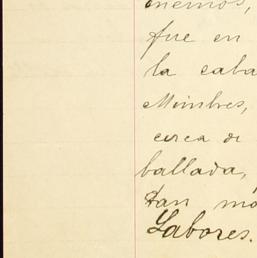 menos,
fue en
la caba
Mimbres,
cerca de
ballada,
tan mo
Labores.